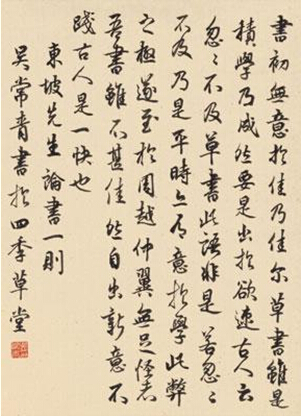 書初無意於佳乃佳尔草書雖是
積學乃成然要是出於欲速古人云
忽忽不及草書此語非是若忽忽
不及乃是平時亦有意於學此弊
之極遂至於周越仲翼無足怪者
吾書雖不甚佳然自出新意不
踐古人是一快也
東坡先生論書一則
吴常青書於四季草堂